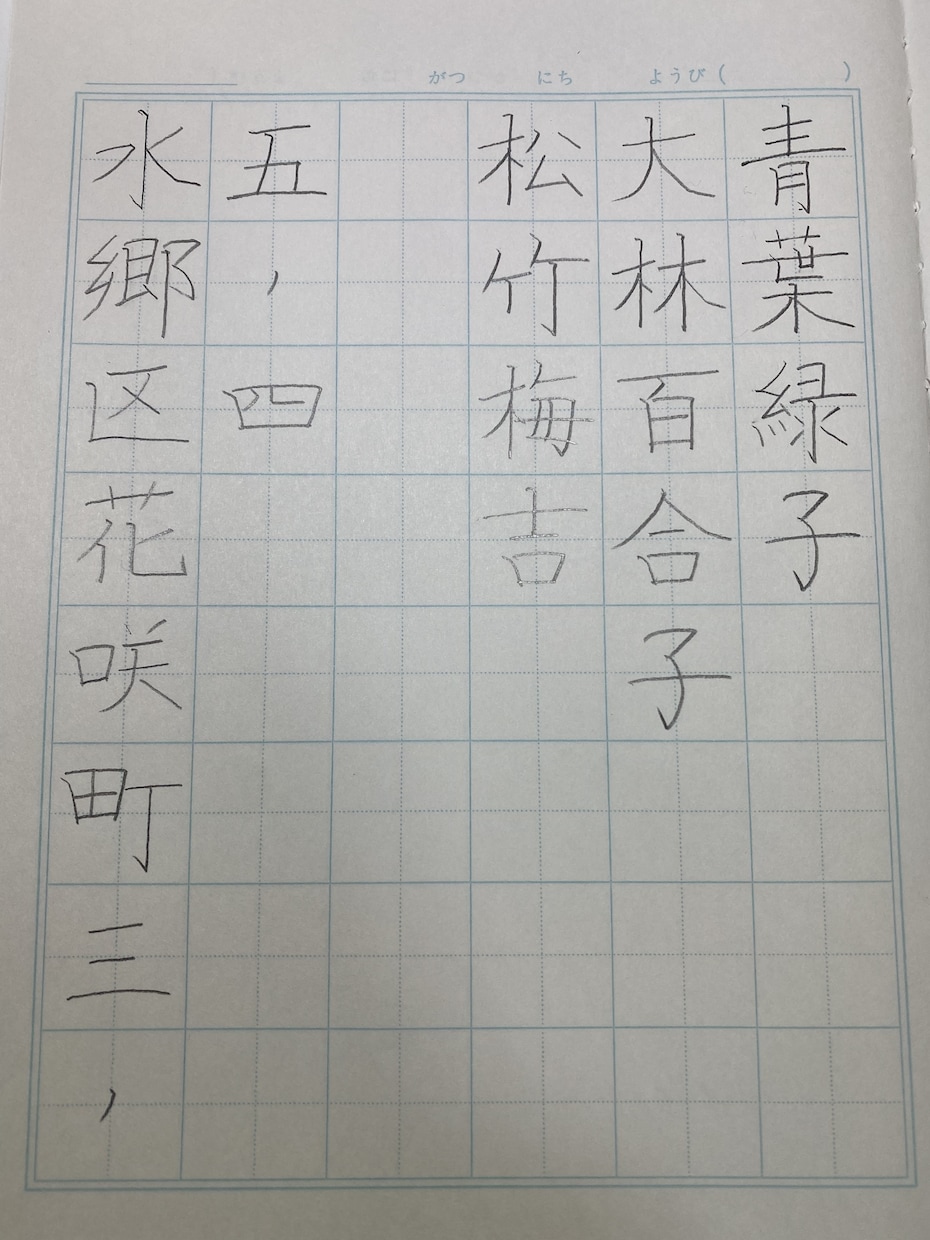 がつ にち ようび( )
青葉緑子
大林百合子
松竹梅吉
五，四
水郷区花咲町三，